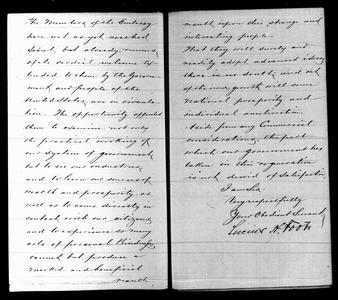 The Members of the Embassy
have not as yet reached
Seoul, but already rumors
of the cordial welcome ex-
tended to them by the Govern-
ment and people of the
United States, are in circula-
tion. The opportunity afforded
them to examine, not only
the practical working of
our system of government,
but to see our industries,
and to learn our sources of
wealth and prosperity, as
well as to come directly in
contact with our citizens,
and to experience so many
acts of personal kindness,
cannot but produce a
marked and beneficial
result
result upon this strange and
interesting people.
That they will surely and
readily adopt advanced ideas,
there is no doubt, and out
of the new growth will come
National prosperity and
individual amelioration.
Aside from any Commercial
considerations, the part
which our government has
taken in this regeneration
is not devoid of satisfaction.
I am Sir
Very respectfully
Your Obedient Servant,
Lucius H. Foote